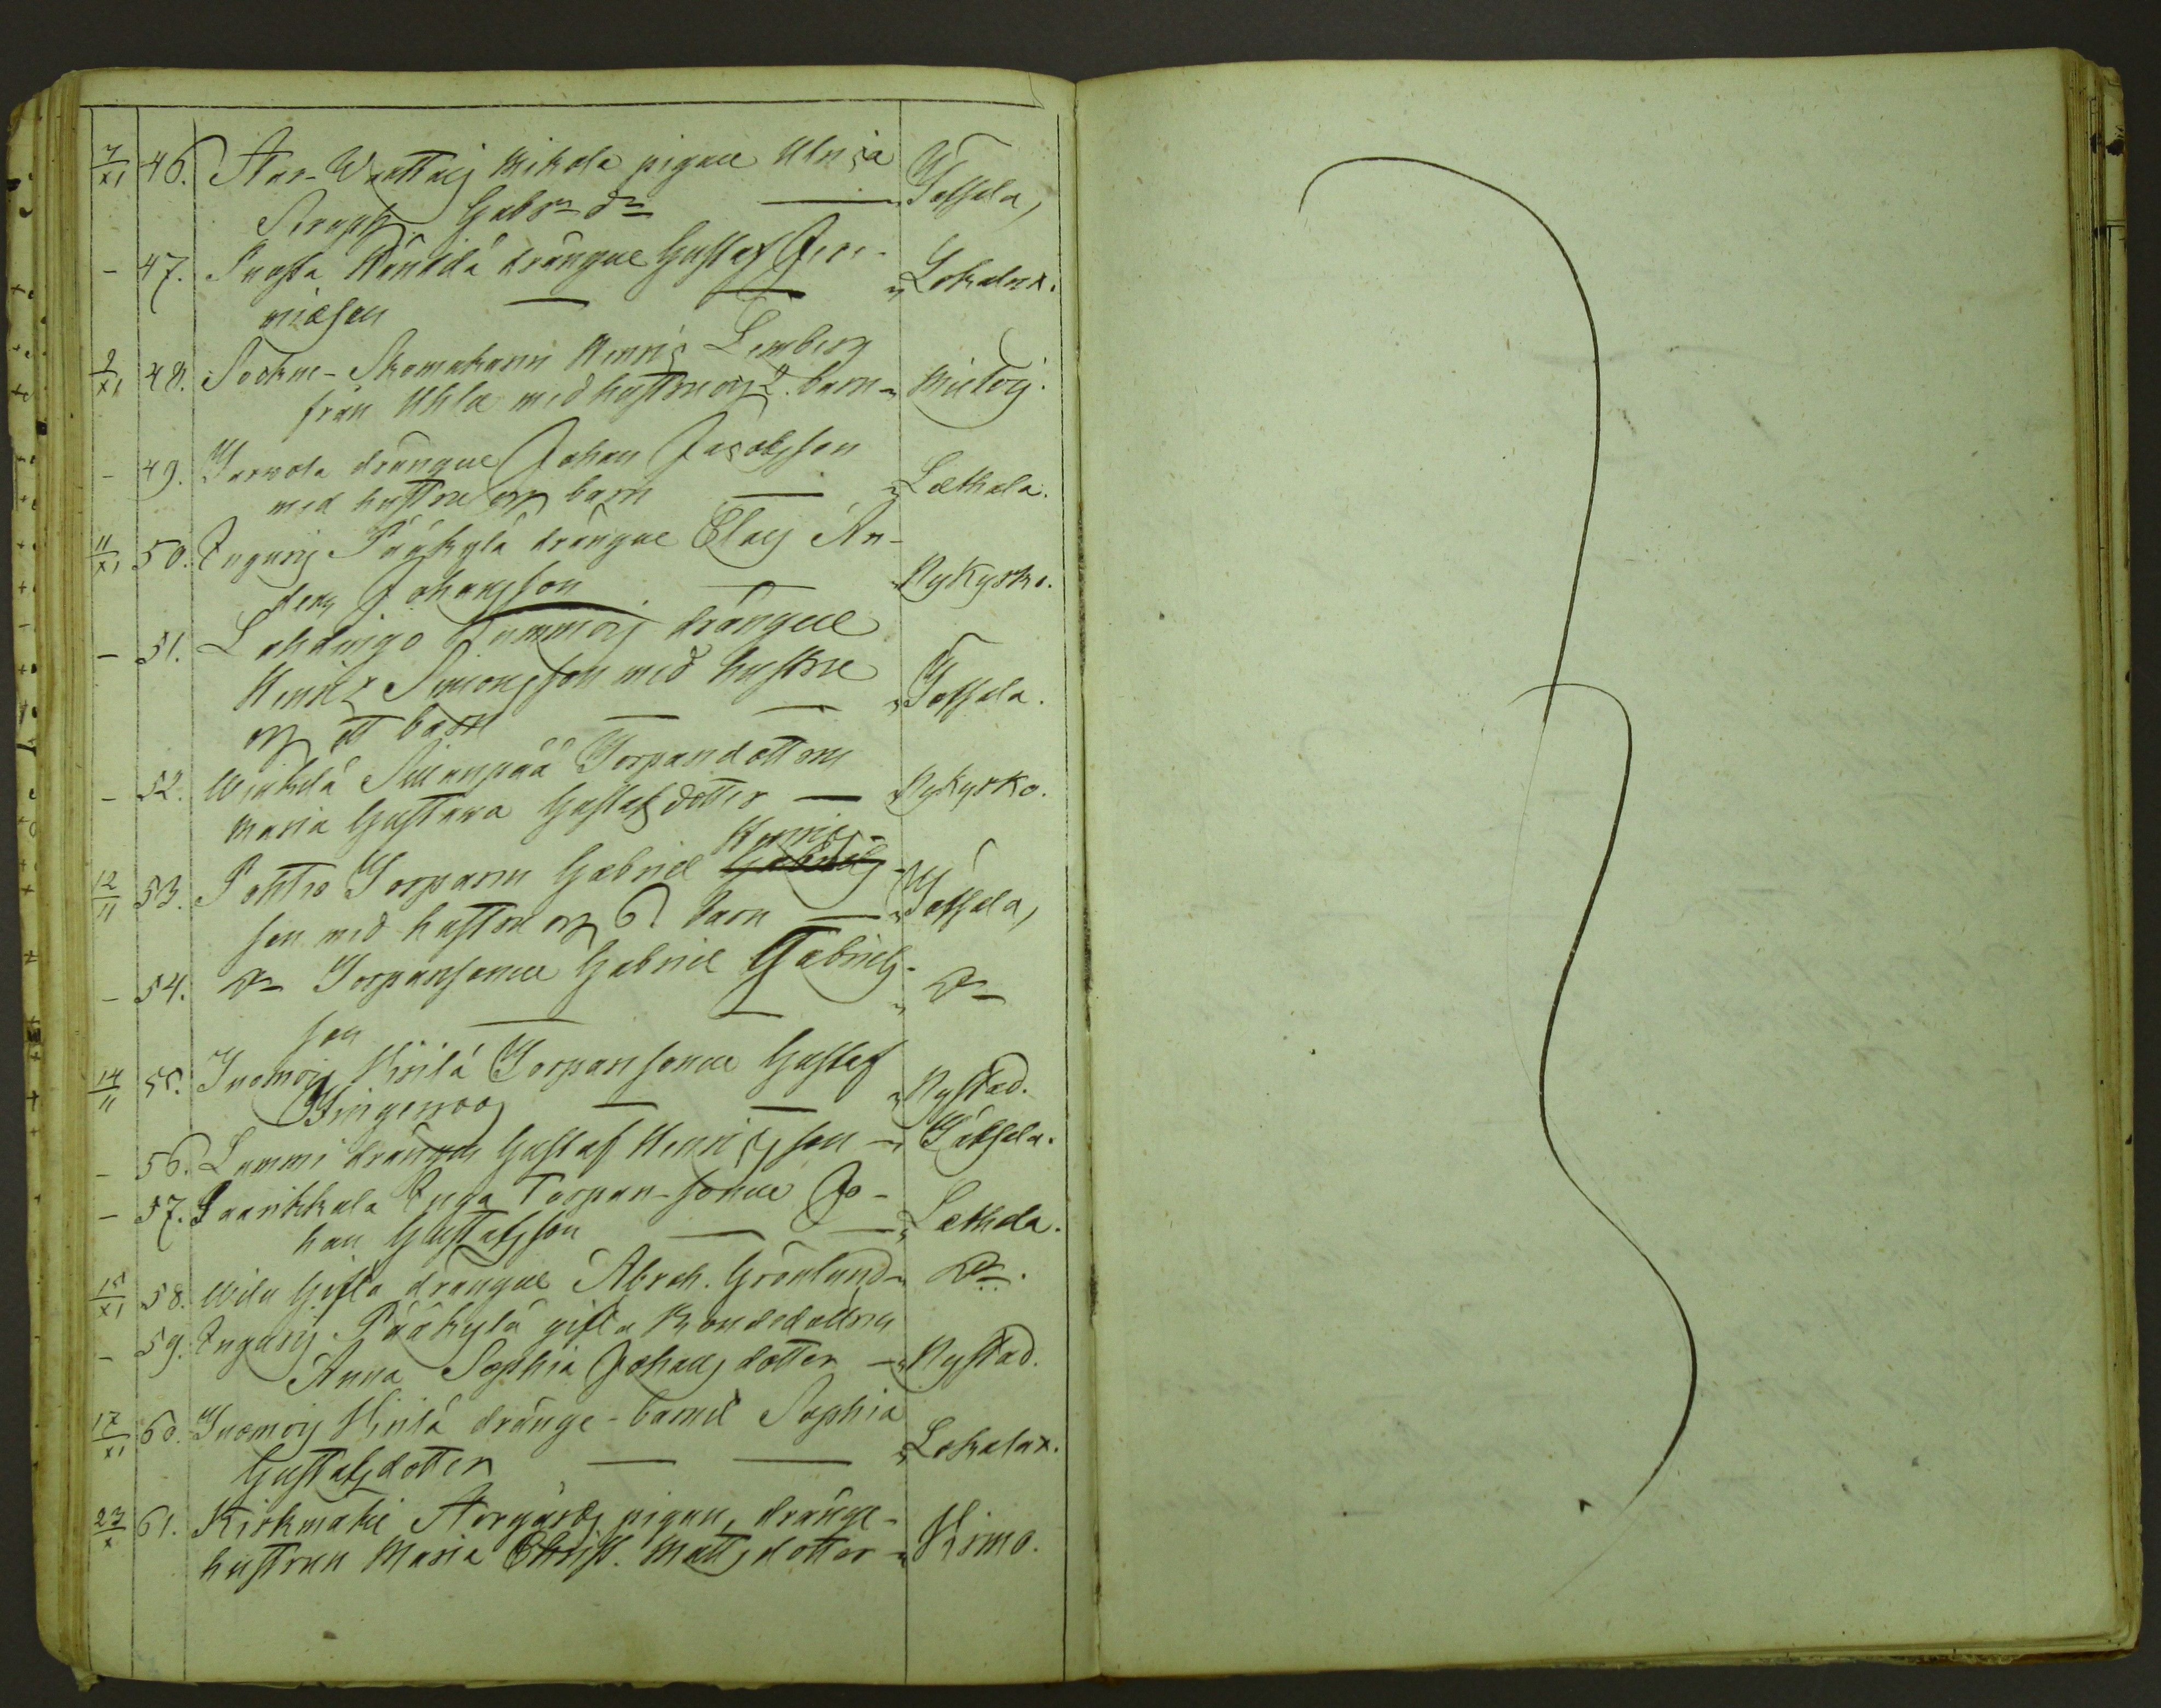 7/XI 46. Stor-Waattais Mikola pigan Ulrica
Seraph. Gabr:s d:r — Töfsala,
- 47. Suosta Hänkilä drängen Gustaf Jere-
miæson — — Lokalax.
9/XI 48. Sockne-Skomakaren Henric Lemberg
från Uhlu med hustru och 2. barn Mietois.
- 49. Yarvola drängen Johan Jacobsson
med hustru och barn — Lethala.
11/XI 50. Ingeris Pääkylä drängen Elias An-
ders Johansson — Nykyrko.
- 51. Lahdingo Tuomois drängen
Henric Simonsson med hustru
och ett barn — — Töfsala.
- 52. Wiukilä Sillanpää Torpardottren
Maria Gustava Gustafsdotter — Nykyrko.
12/11 53. Pohtio Torparen Gabriel Gabriels Henrics-
son med hustru och 6 barn — Töfsala,
- 54. D:o Torparsonen Gabriel Gabriels-
son — — D:o
14/11 55. Tuomois Kirilä Torparsonen Gustaf
Wingerroos — — Nystad.
- 56. Lammi drängen Gustaf Henricsson Töfsala.
- 57. Saarikkala Inga Torpar-sonen Jo-
han Gustafsson — — Lethala.
15/XI 58. Wilu Gifta drängen Abrah. Grönlund D:o.
- 59. Ingeris Pääkylä gifta Bondedottren
Anna Sophia Johansdotter — Nystad.
17/XI 60. Tuomois Kirilä dränge-barnet Sophia
Gustafsdotter — — Lokalax.
23/X 61. Kirkmakie Storgårds pigan, dränge-
hustrun Maria Christ. Mattsdotter Virmo.